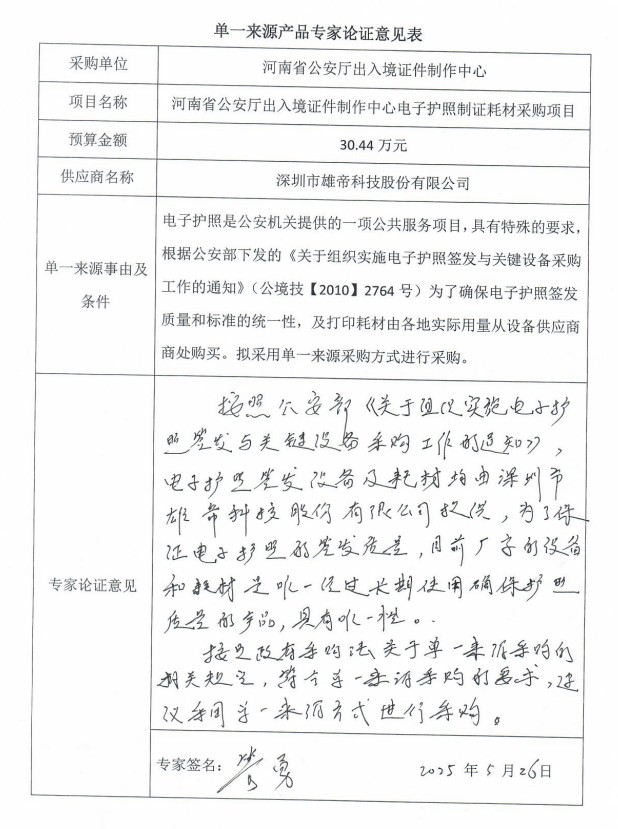 单一来源产品专家论证意见表
采购单位
河南省公安厅出入境证件制作中心
项目名称
河南省公安厅出入境证件制作中心电子护照制证耗材采购项目
预算金额
30.44 万元
供应商名称
深圳市雄帝科技股份有限公司
单一来源事由及
条件
电子护照是公安机关提供的一项公共服务项目，具有特殊的要求，
根据公安部下发的《关于组织实施电子护照签发与关键设备采购
工作的通知》（公境技【2010】2764 号）为了确保电子护照签发
质量和标准的统一性，及打印耗材由各地实际用量从设备供应商
商处购买。拟采用单一来源采购方式进行采购。
专家论证意见
按照公安部《关于组织实施电子护
照签发与关键设备采购工作的通知》，
电子护照签发设备及耗材均由深圳市
雄帝科技股份有限公司提供，为了保
证电子护照的签发质量，目前厂家的设备
和耗材是唯一经过长期使用确保护照
质量的产品，具有唯一性。
按照政府采购法关于单一来源采购的
相关规定，符合单一来源采购的要求，建
议采用单一来源方式进行采购。
专家签名：
勇
2025 年 5 月 26日